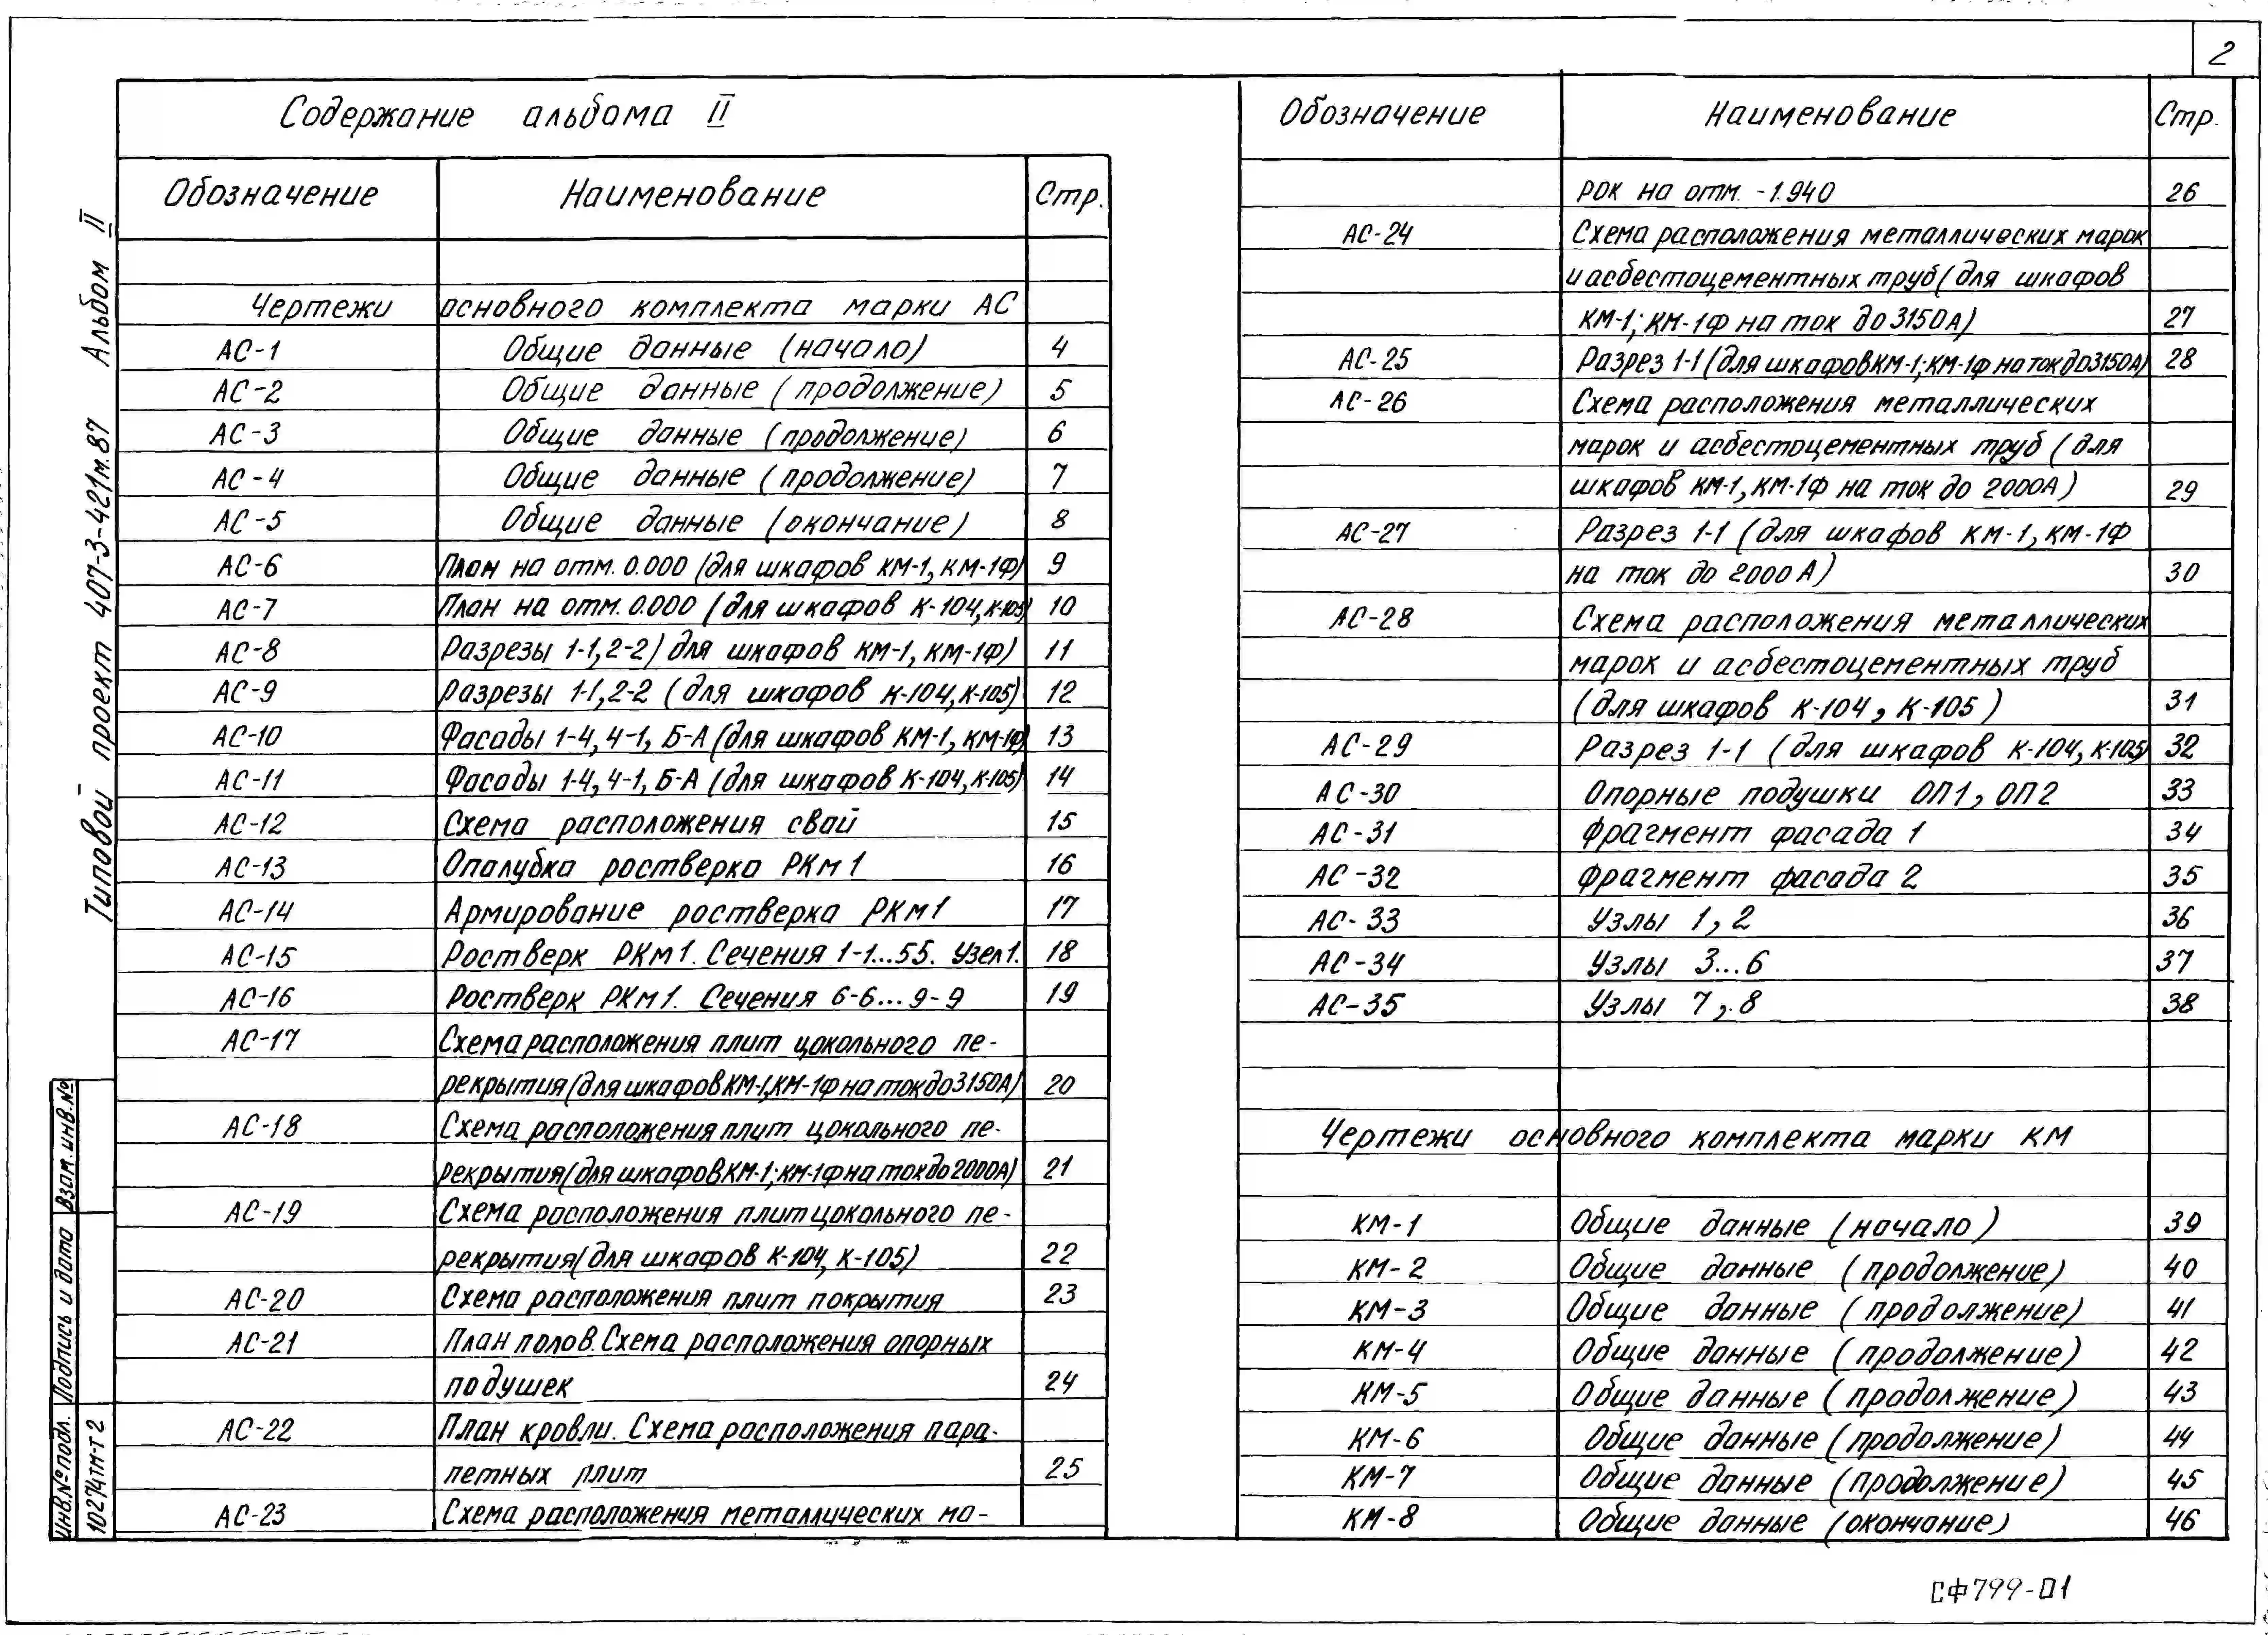 2
Содержание альбома II
Обозначение Наименование Стр.
Чертежи основного комплекта марки АС
АС-1 Общие данные (начало) 4
АС-2 Общие данные (продолжение) 5
АС-3 Общие данные (продолжение) 6
АС-4 Общие данные (продолжение) 7
АС-5 Общие данные (окончание) 8
АС-6 План на отм. 0.000 (для шкафов КМ-1, КМ-1Ф) 9
АС-7 План на отм. 0.000 (для шкафов К-104, К-105) 10
АС-8 Разрезы 1-1, 2-2) для шкафов КМ-1, КМ-1Ф) 11
АС-9 Разрезы 1-1, 2-2 (для шкафов К-104, К-105) 12
АС-10 Фасады 1-4, 4-1, Б-А (для шкафов КМ-1, КМ-1Ф) 13
АС-11 Фасады 1-4, 4-1, Б-А (для шкафов К-104, К-105) 14
АС-12 Схема расположения свай 15
АС-13 Опалубка ростверка РКм1 16
АС-14 Армирование ростверка РКм1 17
АС-15 Ростверк РКм1. Сечения 1-1...55. Узел 1. 18
АС-16 Ростверк РКм1. Сечения 6-6...9-9 19
АС-17 Схема расположения плит цокольного пе-
рекрытия (для шкафов КМ-1, КМ-1Ф на ток до 3150А) 20
АС-18 Схема расположения плит цокольного пе-
рекрытия (для шкафов КМ-1; КМ-1Ф на ток до 2000А) 21
АС-19 Схема расположения плит цокольного пе-
рекрытия (для шкафов К-104, К-105) 22
АС-20 Схема расположения плит покрытия 23
АС-21 План полов. Схема расположения опорных
подушек 24
АС-22 План кровли. Схема расположения пара-
петных плит 25
АС-23 Схема расположения металлических ма-
Обозначение Наименование Стр.
рок на отм. -1.940 26
АС-24 Схема расположения металлических марок
и асбестоцементных труб (для шкафов
КМ-1; КМ-1Ф на ток до 3150А) 27
АС-25 Разрез 1-1 (для шкафов КМ-1; КМ-1Ф на ток до 3150А) 28
АС-26 Схема расположения металлических
марок и асбестоцементных труб (для
шкафов КМ-1, КМ-1Ф на ток до 2000А) 29
АС-27 Разрез 1-1 (для шкафов КМ-1, КМ-1Ф
на ток до 2000 А) 30
АС-28 Схема расположения металлических
марок и асбестоцементных труб
(для шкафов К-104, К-105) 31
АС-29 Разрез 1-1 (для шкафов К-104, К-105) 32
АС-30 Опорные подушки ОП1, ОП2 33
АС-31 Фрагмент фасада 1 34
АС-32 Фрагмент фасада 2 35
АС-33 Узлы 1, 2 36
АС-34 Узлы 3...6 37
АС-35 Узлы 7, 8 38
Чертежи основного комплекта марки КМ
КМ-1 Общие данные (начало) 39
КМ-2 Общие данные (продолжение) 40
КМ-3 Общие данные (продолжение) 41
КМ-4 Общие данные (продолжение) 42
КМ-5 Общие данные (продолжение) 43
КМ-6 Общие данные (продолжение) 44
КМ-7 Общие данные (продолжение) 45
КМ-8 Общие данные (окончание) 46
Типовой проект 407-3-421м.87 Альбом II
Взам. инв. №
Подпись и дата
Инв. № подл.
10274тм-т2
СФ799-01